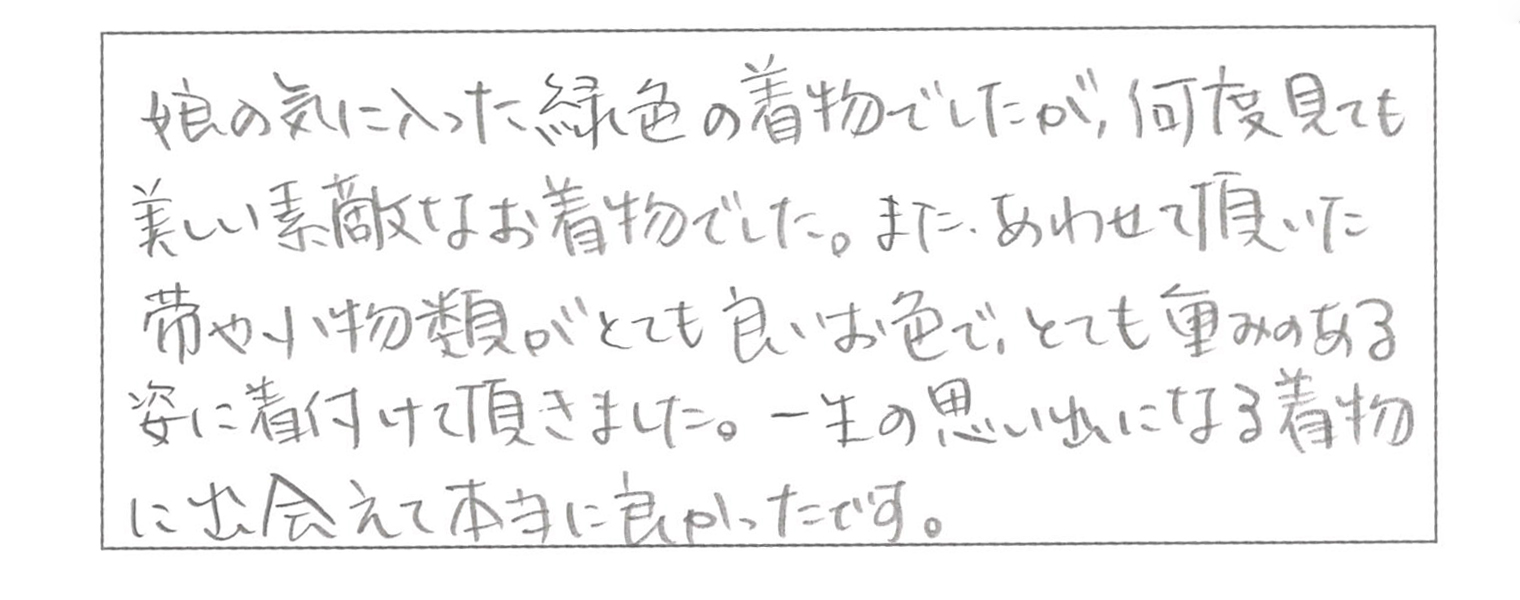 娘の気に入った緑色の着物でしたが、何度見ても
美しい素敵なお着物でした。また、あわせて頂いた
帯や小物類がとても良いお色で、とても重みのある
姿に着付けて頂きました。一生の思い出になる着物
に出会えて本当に良かったです。